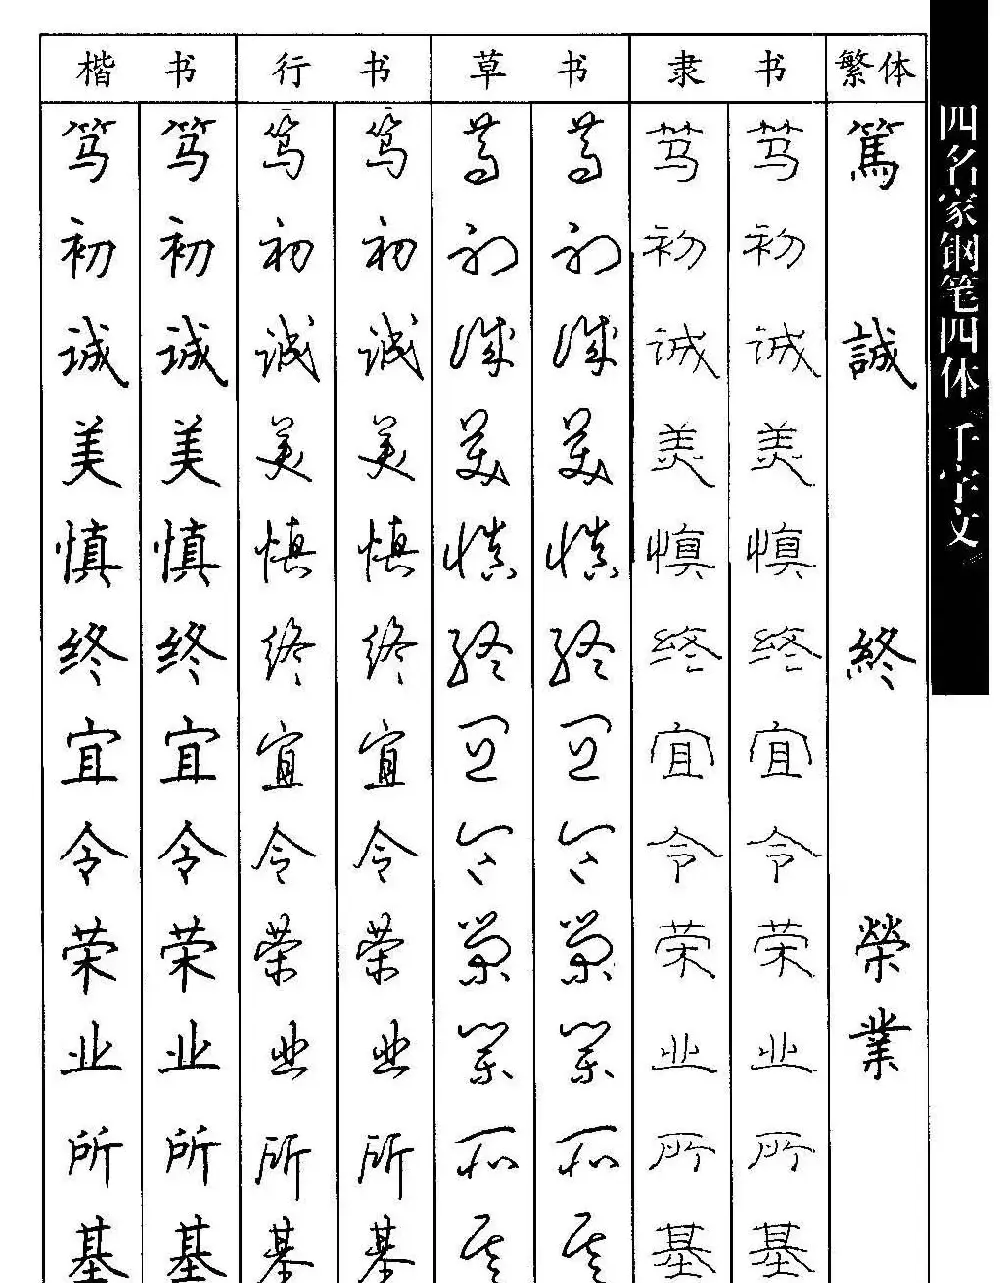 楷书 行书 草书 隶书 繁体
笃 笃 笃 笃 笃 笃 笃 笃 篤
初 初 初 初 初 初 初 初
诚 诚 诚 诚 诚 诚 诚 诚 誠
美 美 美 美 美 美 美 美
慎 慎 慎 慎 慎 慎 慎 慎
终 终 终 终 终 终 终 终 終
宜 宜 宜 宜 宜 宜 宜 宜
令 令 令 令 令 令 令 令
荣 荣 荣 荣 荣 荣 荣 荣 榮
业 业 业 业 业 业 业 业 業
所 所 所 所 所 所 所 所
基 基 基 基 基 基 基 基
四名家钢笔四体《千字文》